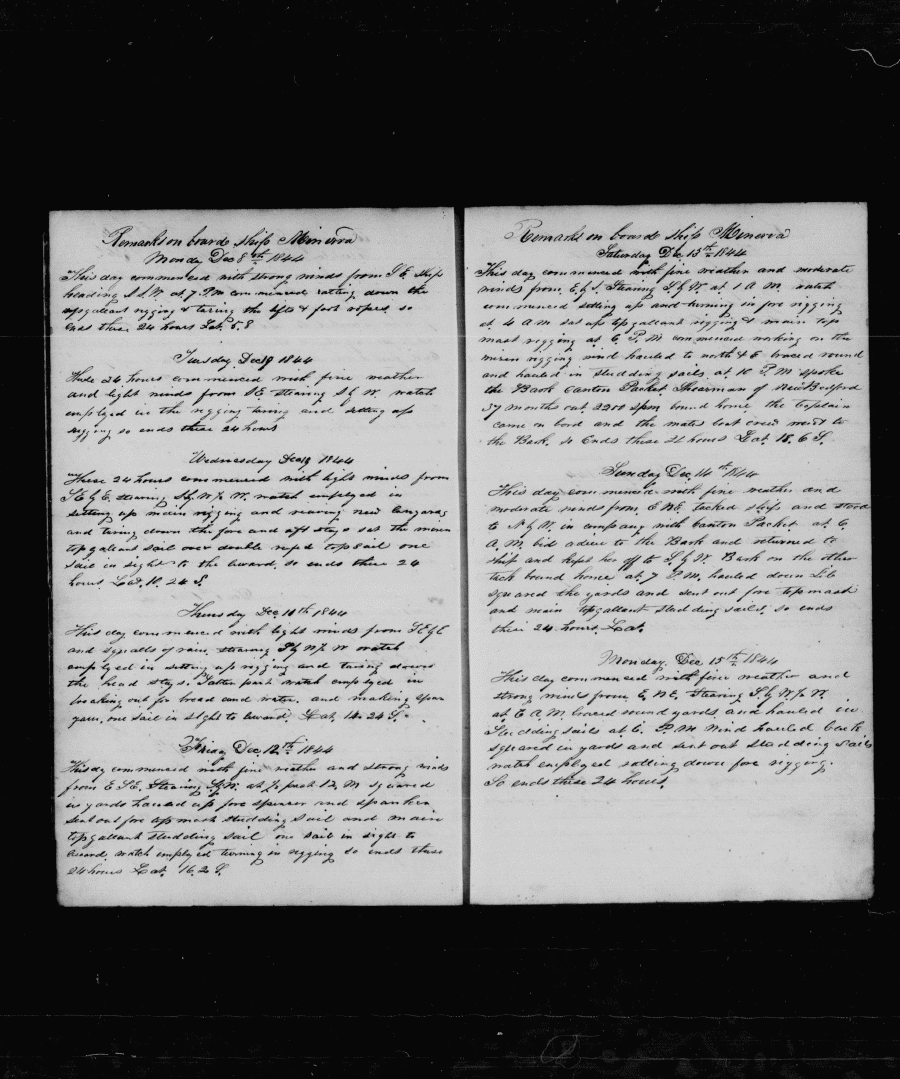 Remarks on board ship Minerva
Monday Dec 8th 1844
This day commenced with strong winds from S E ship
heading S S W. at 7 P.m commenced ratling down the
topgallant rigging & taring the lifts & foot ropes. so
ends these 24 hours Lat. 5.8
Tuesday. Dec 1844
These 24 hours commenced with fine weather
and light winds from SE stearing S by W. watch
employed in the rigging taring and setting up
rigging so ends these 24 hours
Wednesday Dec 1844
These 24 hours commenced with light winds from
SE by E. stearing S by W ½ W. watch employed in
setting up main rigging and reaving new lanyards
and taring down the fore and aft stays set the main
topgallant sail over double reefd topsail one
sail in sight to the leward. so ends these 24
hours Lat. 11. 24 S.
Thursday Dec. 11th 1844
This day commenced with light winds from SE by E
and squalls of rain. stearing S by W ½ W watch
employed in setting up rigging and taring down
the head stays. Latter part watch employed in
breaking out for bread and water. and making spun
yarn. one sail in sight to leward. Lat. 14. 24 S.
Friday Dec 12th 1844
This dy commenced with fine weather and strong winds
from E S E. Stearing S by W. at ½ past 12 M squared
in yards hauled up fore spencer and spanker
sent out fore topmast studding sail and main
topgallant studding sail one sail in sight to
leward. watch employed turning in rigging so ends these
24 hours Lat. 16. 2 S.
Remarks on board ship Minerva
Saturday Dec 13th 1844
This day commenced with fine weather and moderate
winds from. E by S. Stearing S by W. at 1 A M. watch
commenced setting up and turning in fore rigging
at 4 A M sat up topgallant rigging & main top
mast rigging at 6. P. M commenced working on the
mizen rigging wind hauled to north & E braced round
and hauled in studding sails. at 10 P. M spoke
the Bark Canton Packet Shearman of New Bedford
37 months out 2200 spm bound home. the Captain
came on bord and the mates boat crew went to
the Bark. So Ends these 24 hours Lat. 18. 6 S.
Sunday Dec 14th 1844
This day commenced with fine weather and
moderate winds from. E N E. tacked ship and stood
to N by W. in company with Canton Packet. at 6.
A. M. bid adieu to the Bark and returned to
ship and kept her off to S. by W. Bark on the other
tack bound home. at 7 P. M. hauled down Jib
squared the yards and sent out fore topmast
and main topgallant studding sails. so ends
these 24 hours. Lat.
Monday. Dec 15th 1844
This day commenced with fine weather and
strong winds from. E. N E. Stearing S. by W ½ W.
at 6 A. M. braced round yards and hauled in
Studding sails at 6. P. M wind hauled back
squared in yards and sent out studding sails
watch employed ratling down fore rigging.
So ends these 24 hours.